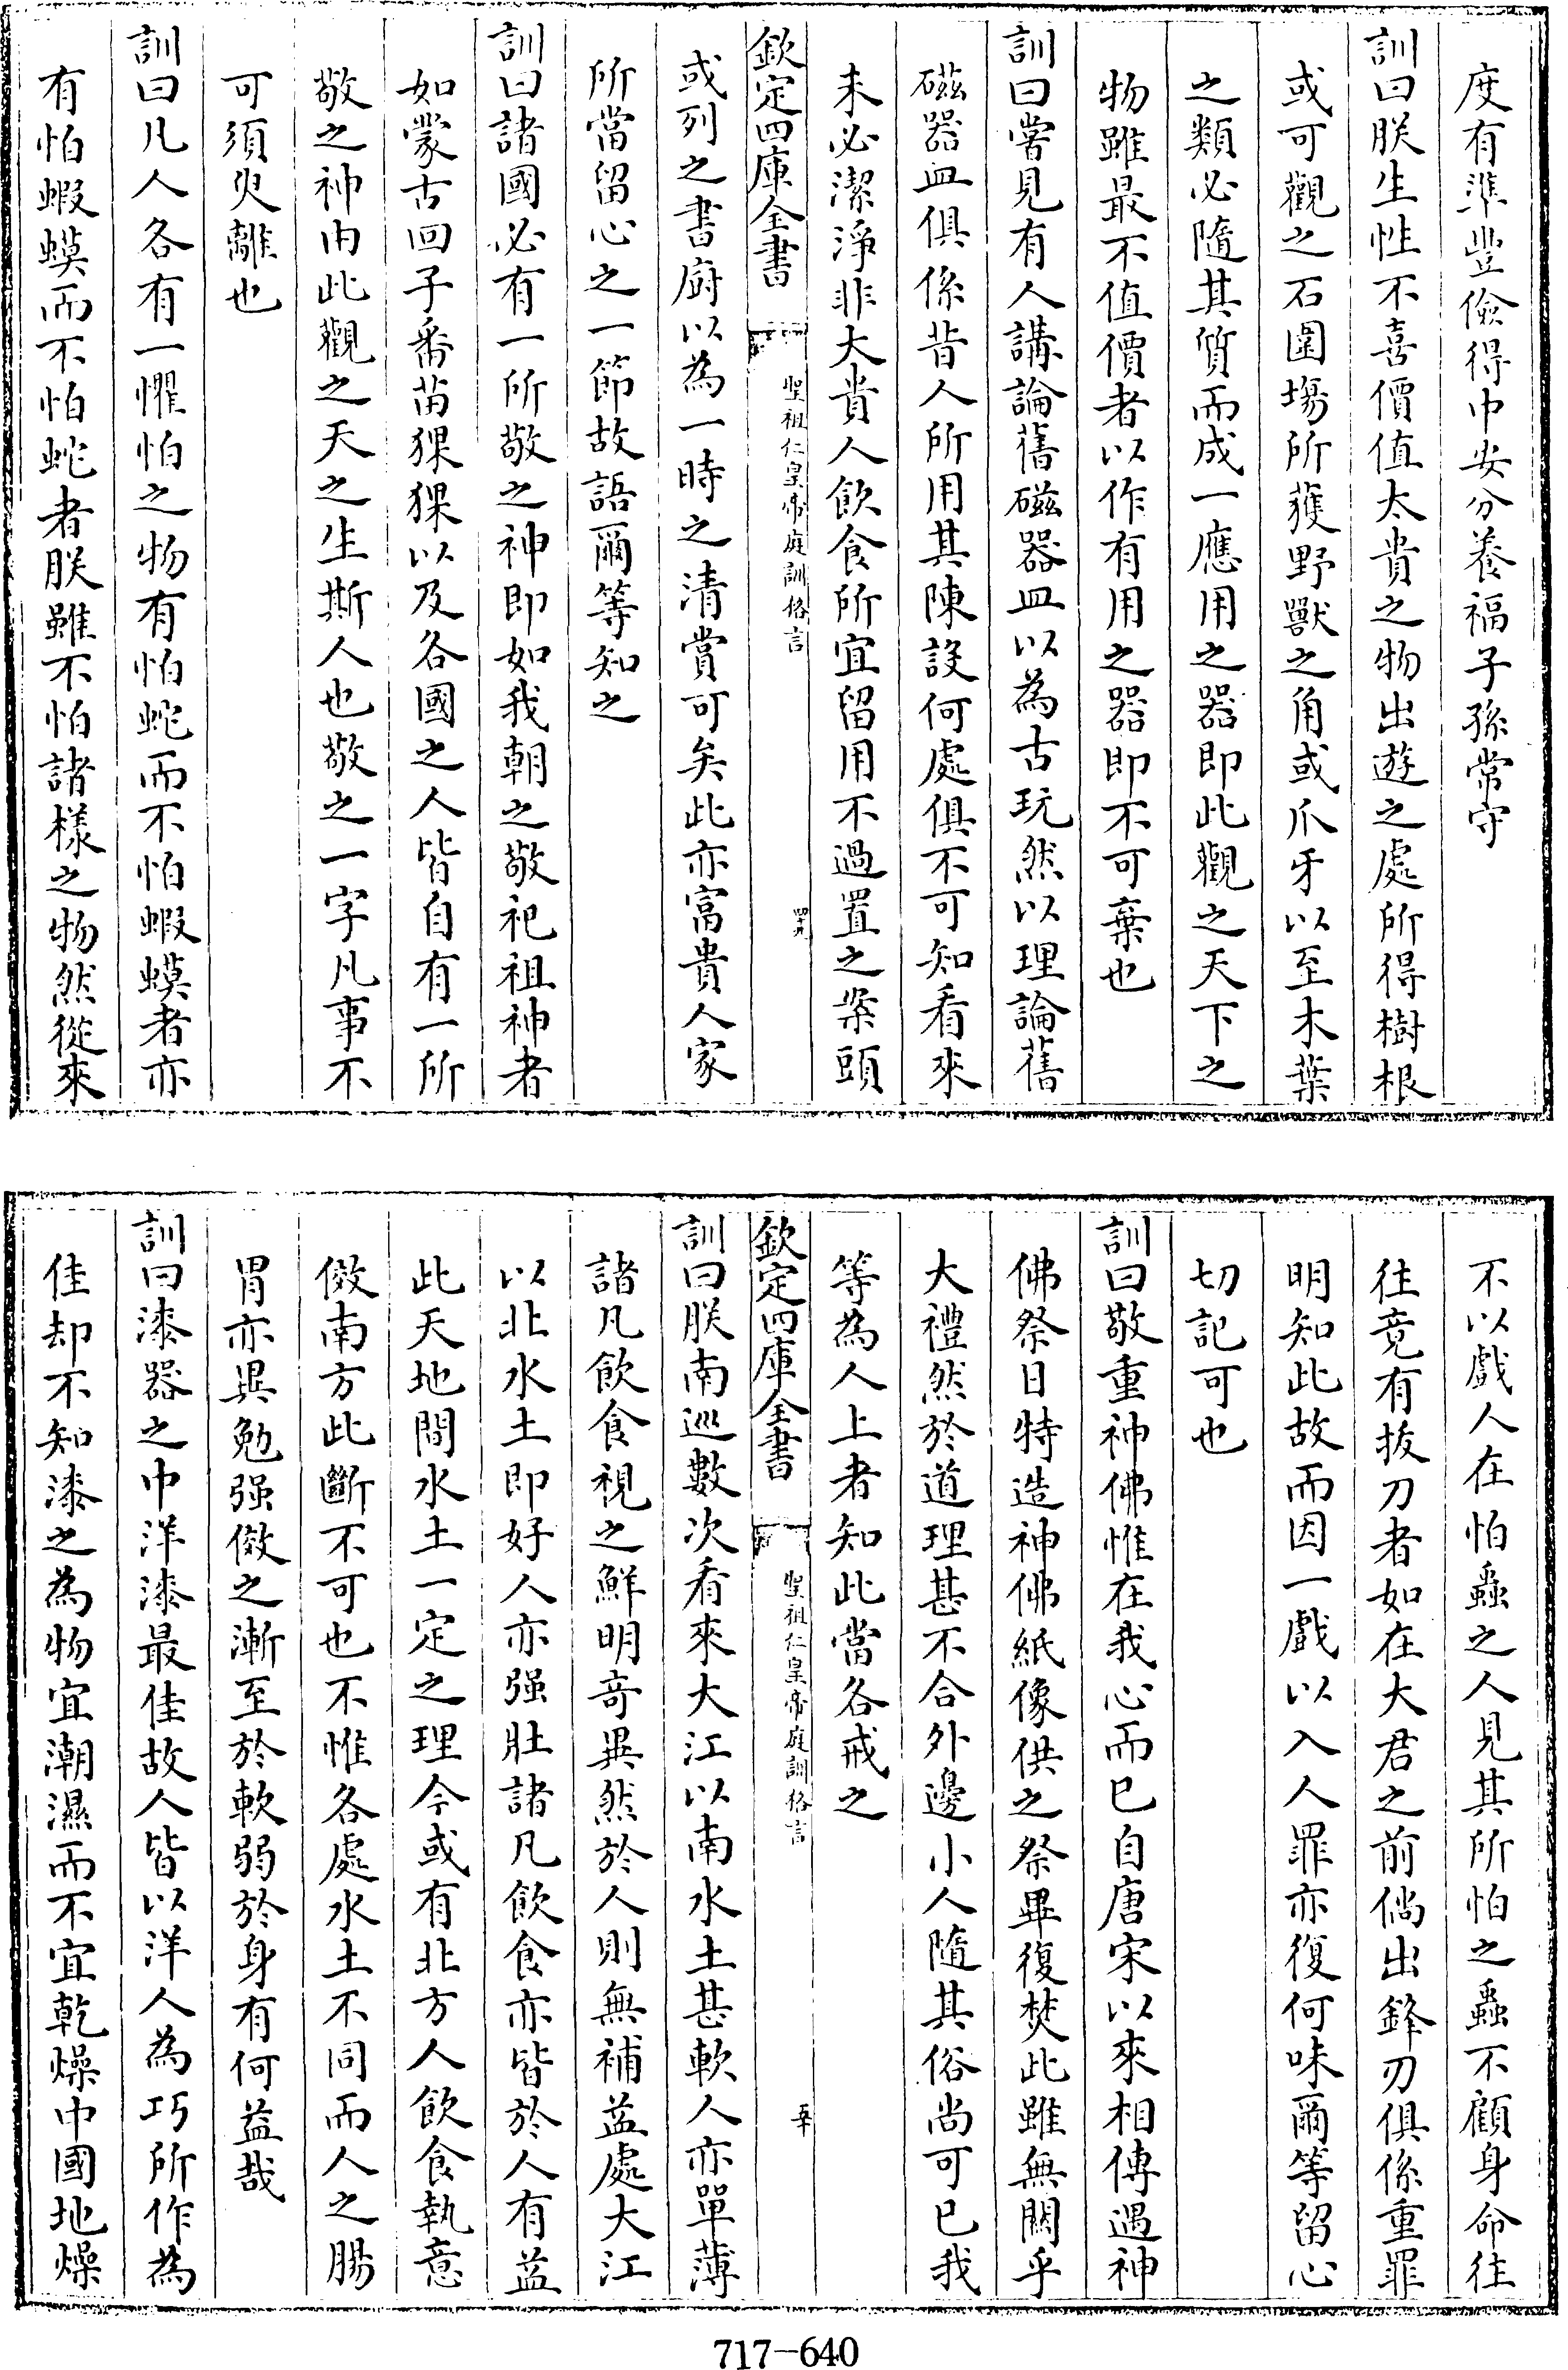 度有準豐儉得中安分養福子孫常守
訓曰朕生性不喜價值太貴之物出遊之處所得樹根
或可觀之石圍場所獲野獸之角或爪牙以至木葉
之類必隨其質而成一應用之器即此觀之天下之
物雖最不值價者以作有用之器即不可棄也
訓曰嘗見有人講論舊磁器皿以為古玩然以理論舊
磁器皿俱係昔人所用其陳設何處俱不可知看來
未必潔淨非大貴人飲食所宜留用不過置之案頭
欽定四庫全書
聖祖仁皇帝庭訓格言
四十九
或列之書廚以為一時之清賞可矣此亦富貴人家
所當留心之一節故語爾等知之
訓曰諸國必有一所敬之神即如我朝之敬祀祖神者
如蒙古回子番苗猓猓以及各國之人皆自有一所
敬之神由此觀之天之生斯人也敬之一字凡事不
可須臾離也
訓曰凡人各有一懼怕之物有怕蛇而不怕蝦蟆者亦
有怕蝦蟆而不怕蛇者朕雖不怕諸樣之物然從來
不以戲人在怕蟲之人見其所怕之蟲不顧身命往
往竟有拔刀者如在大君之前倘出鋒刃俱係重罪
明知此故而因一戲以入人罪亦復何味爾等留心
切記可也
訓曰敬重神佛惟在我心而已自唐宋以來相傳遇神
佛祭日特造神佛紙像供之祭畢復焚此雖無關乎
大禮然於道理甚不合外邊小人隨其俗尚可已我
等為人上者知此當各戒之
欽定四庫全書
聖祖仁皇帝庭訓格言
五十
訓曰朕南巡數次看來大江以南水土甚軟人亦單薄
諸凡飲食視之鮮明奇異然於人則無補益處大江
以北水土即好人亦强壯諸凡飲食亦皆於人有益
此天地間水土一定之理今或有北方人飲食執意
倣南方此斷不可也不惟各處水土不同而人之腸
胃亦異勉强倣之漸至於軟弱於身有何益哉
訓曰漆器之中洋漆最佳故人皆以洋人為巧所作為
佳却不知漆之為物宜潮濕而不宜乾燥中國地燥
717-640